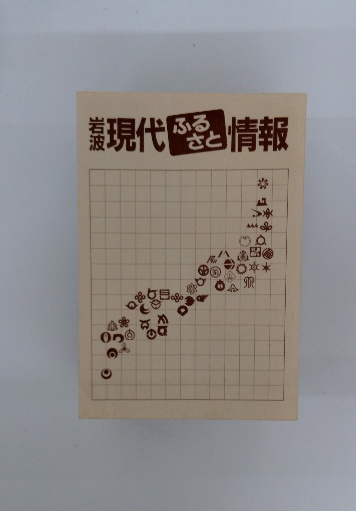 岩波現代ふるさと情報